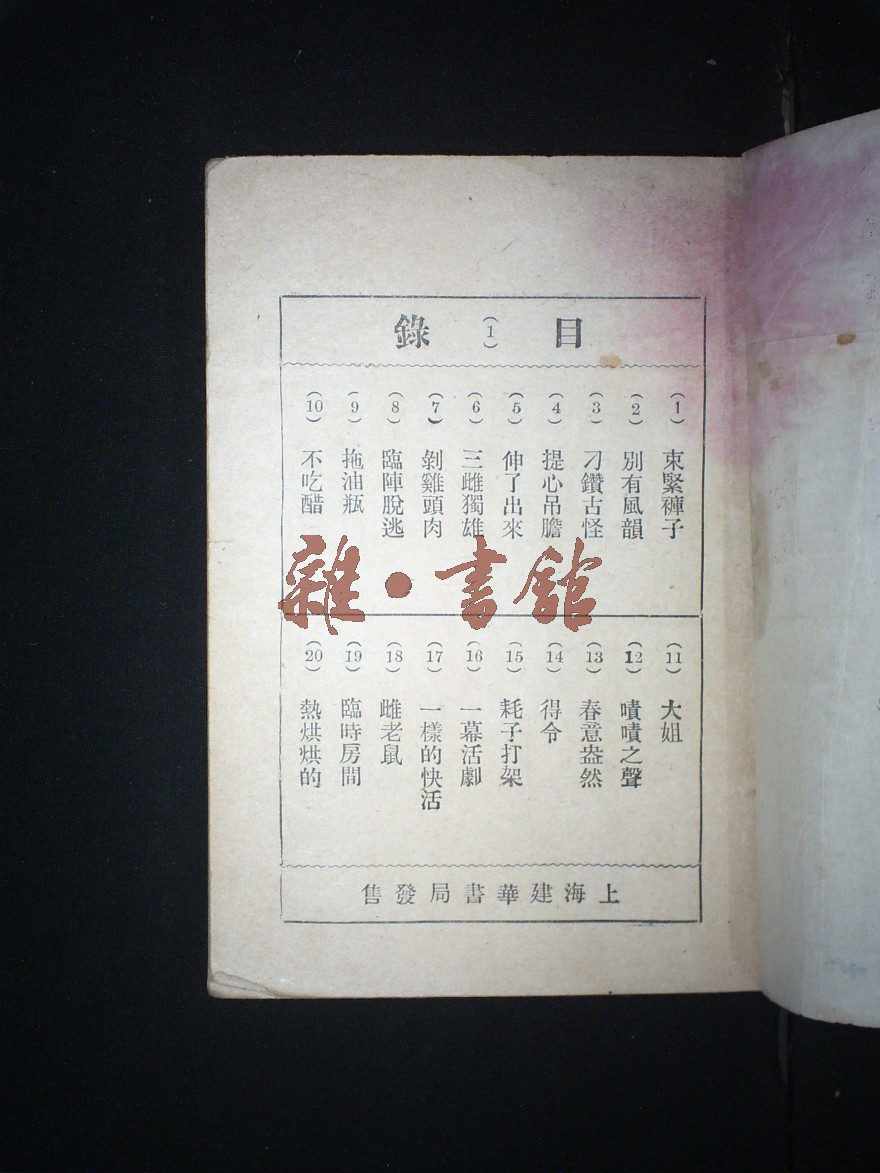 目 (1) 錄
(1) 束緊褲子
(2) 別有風韻
(3) 刁鑽古怪
(4) 提心吊膽
(5) 伸了出來
(6) 三雌獨雄
(7) 剝雞頭肉
(8) 臨陣脫逃
(9) 拖油瓶
(10) 不吃醋
雜·書館
(11) 大姐
(12) 嘖嘖之聲
(13) 春意盎然
(14) 得令
(15) 耗子打架
(16) 一幕活劇
(17) 一樣的快活
(18) 雌老鼠
(19) 臨時房間
(20) 熱烘烘的
上海建華書局發售